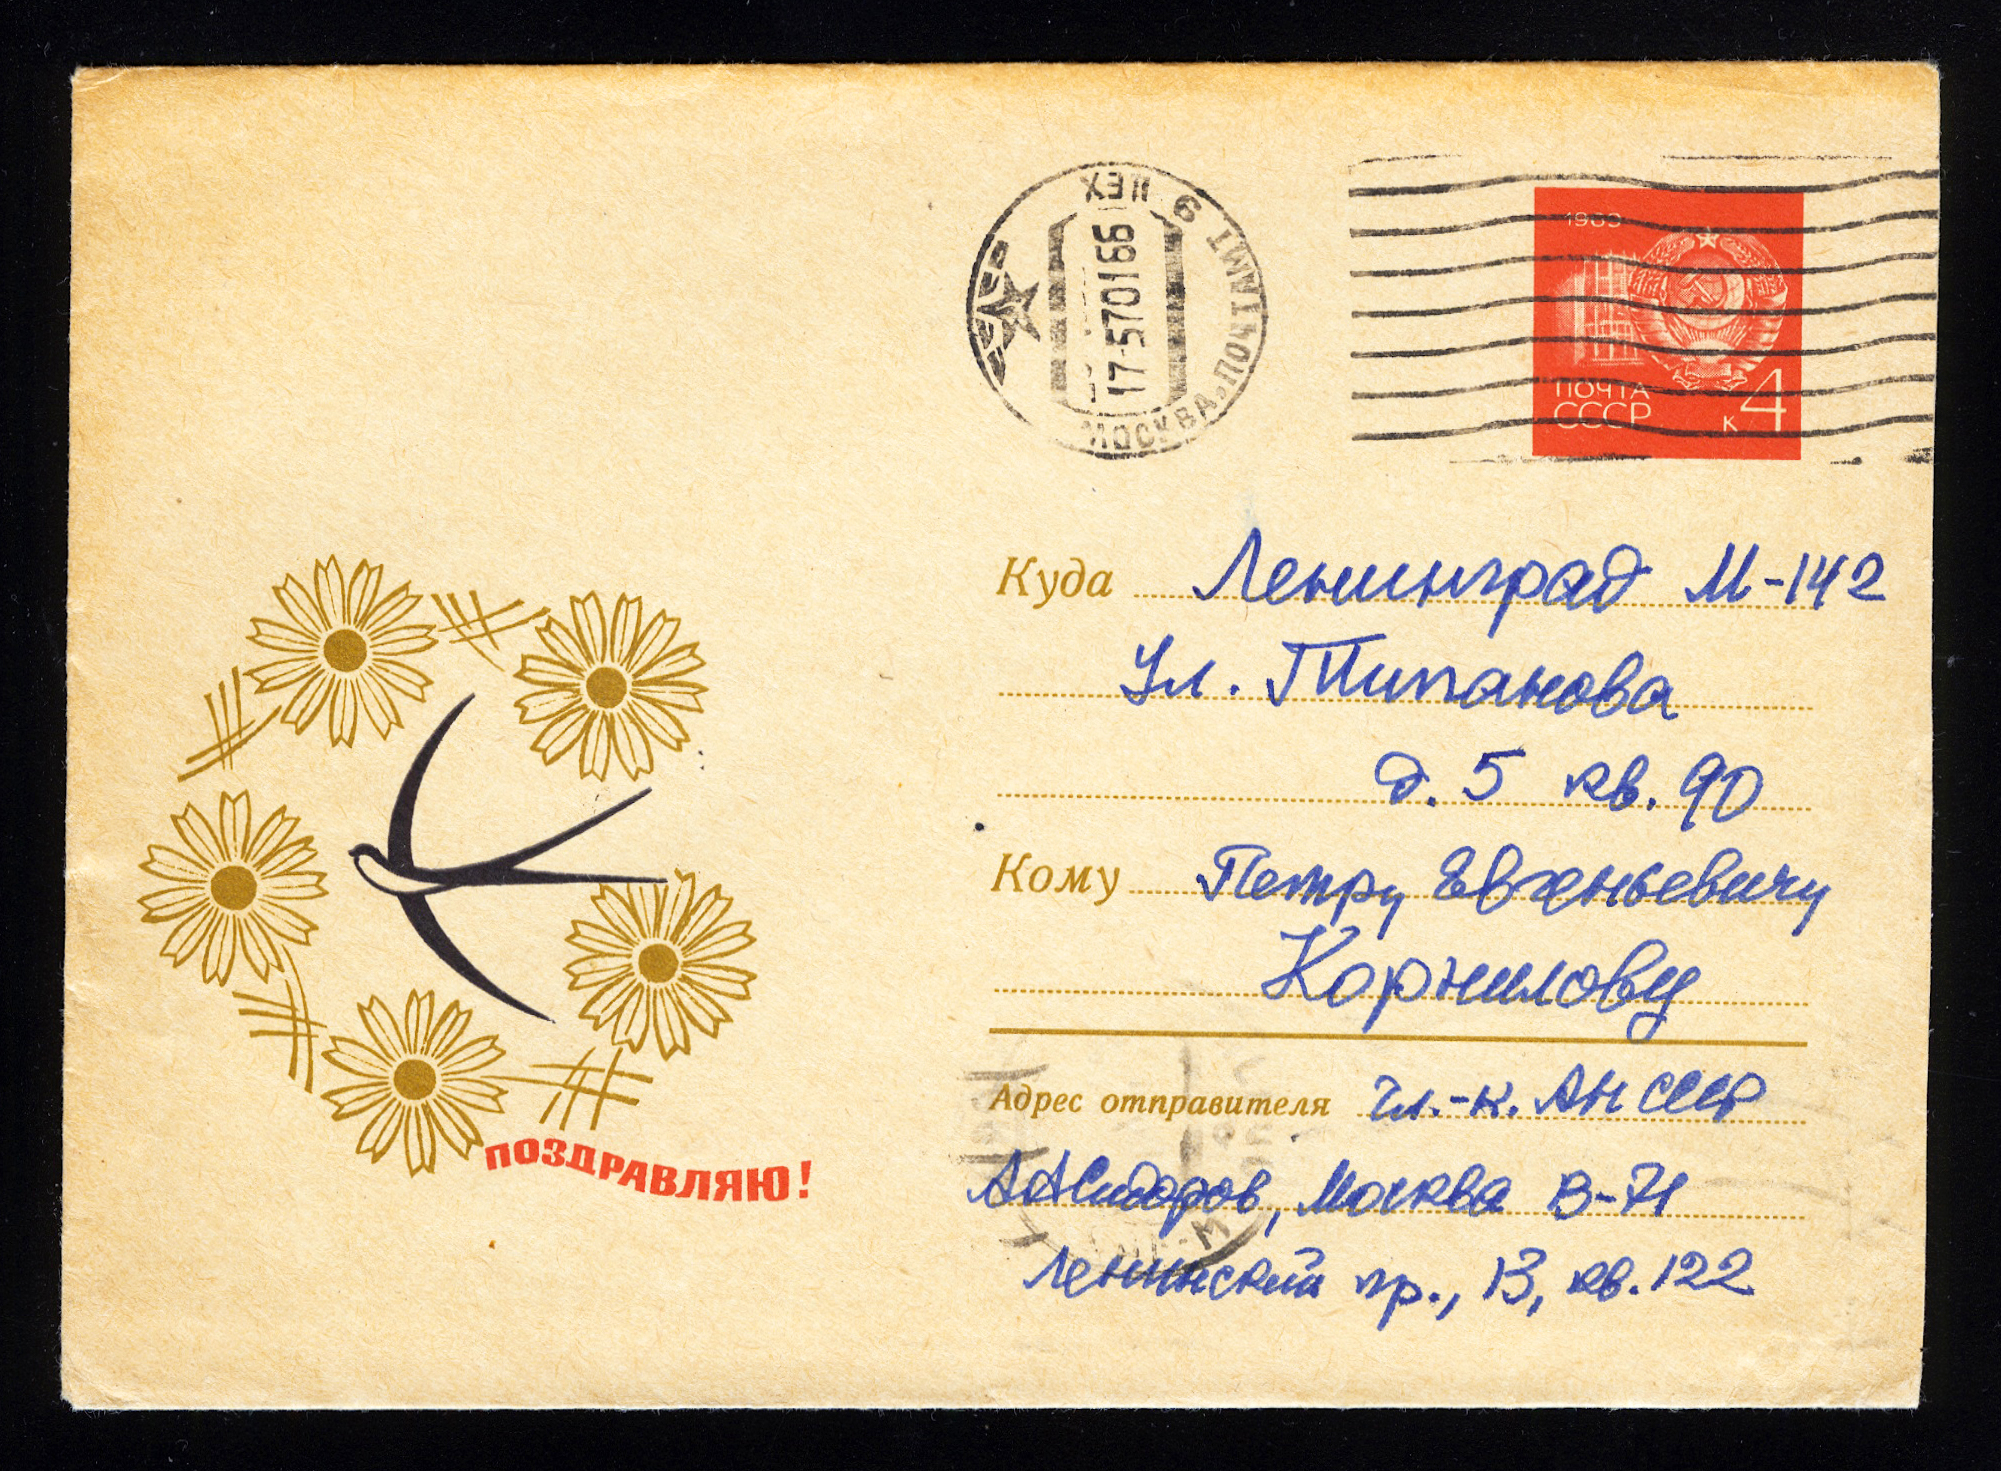 ЦЕХ 9
МОСКВА, ПОЧТАМТ
17-570166
1969
ПОЧТА
СССР
к 4
Куда Ленинград М-142
Ул. Типанова
д. 5 кв. 90
Кому Петру Евгеньевичу
Корнилову
Адрес отправителя Чл.-к. АН СССР
ААСидоров, Москва В-71
Ленинский пр., 13, кв. 122
ПОЗДРАВЛЯЮ!